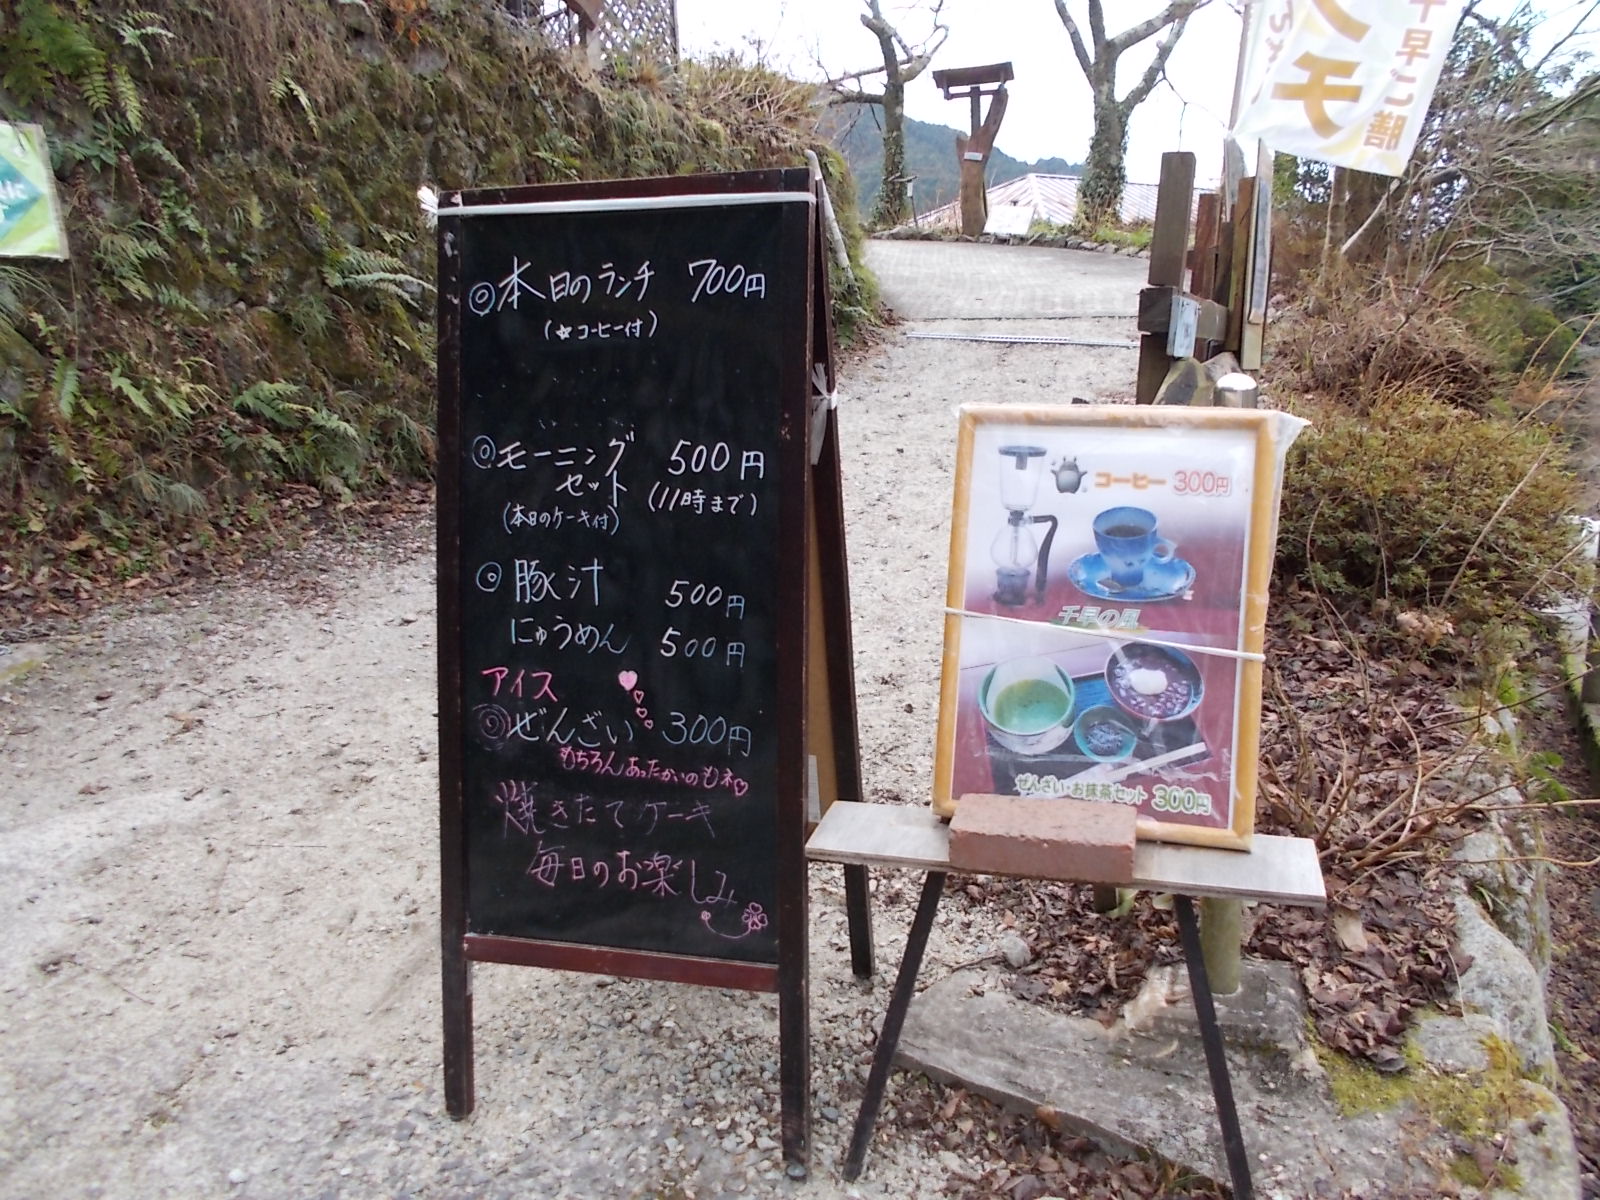 ◎本日のランチ 700円
(☆コーヒー付)
◎モーニング 500円
セット (11時まで)
(本日のケーキ付)
◎豚汁 500円
にゅうめん 500円
アイス
◎ぜんざい 300円
もちろんあったかいのもネ♡
焼きたてケーキ
毎日のお楽しみ
コーヒー 300円
千早の風
ぜんざい・お抹茶セット 300円
千早ご膳
ンチ